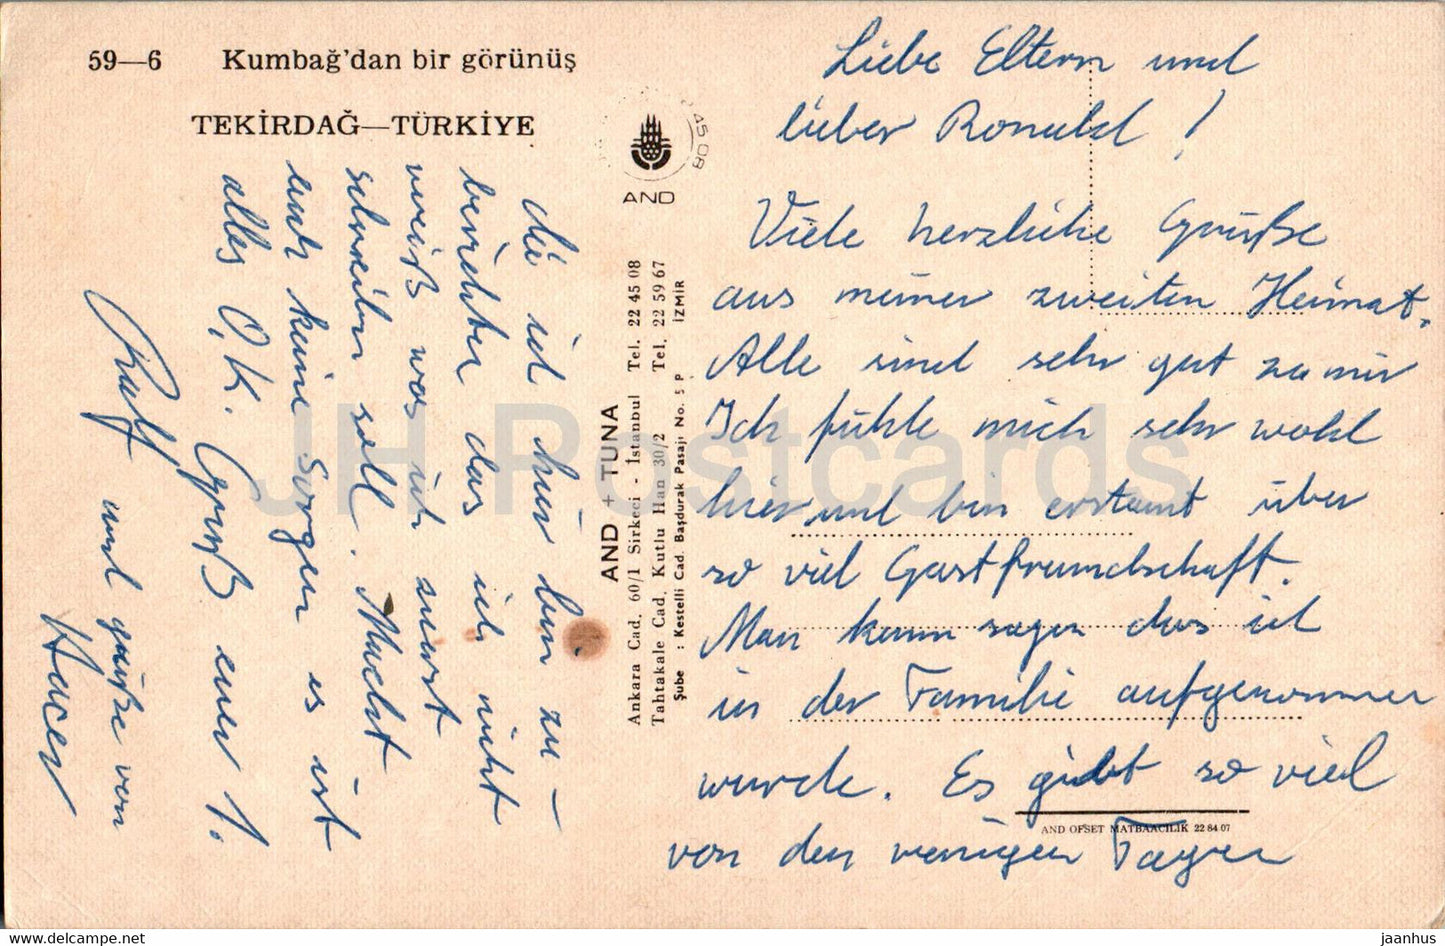 59—6 Kumbağ'dan bir görünüş
TEKİRDAĞ—TÜRKİYE
45 08
AND
AND + TUNA
Ankara Cad. 60/1 Sirkeci - İstanbul Tel. 22 45 08
Tahtakale Cad. Kutlu Han 30/2 Tel. 22 59 67
Şube : Kestelli Cad. Başdurak Pasajı No. 5 P İZMİR
AND OFSET MATBAACILIK 22 84 07
Liebe Eltern und
lieber Ronald!
Viele herzliche Grüße
aus meiner zweiten Heimat.
Alle sind sehr gut zu mir
Ich fühle mich sehr wohl
hier und bin erstaunt über
so viel Gastfreundschaft.
Man kann sagen das ich
in der Familie aufgenommen
wurde. Es gibt so viel
von den wenigen Tagen
die ich hier bin zu
berichten das ich nicht
weiß was ich zuerst
schreiben soll. Macht
euch keine Sorgen es ist
alles O.K. Gruß euer
Ralf und grüße von
Hacer
JH Postcards
jaanhus www.delcampe.net